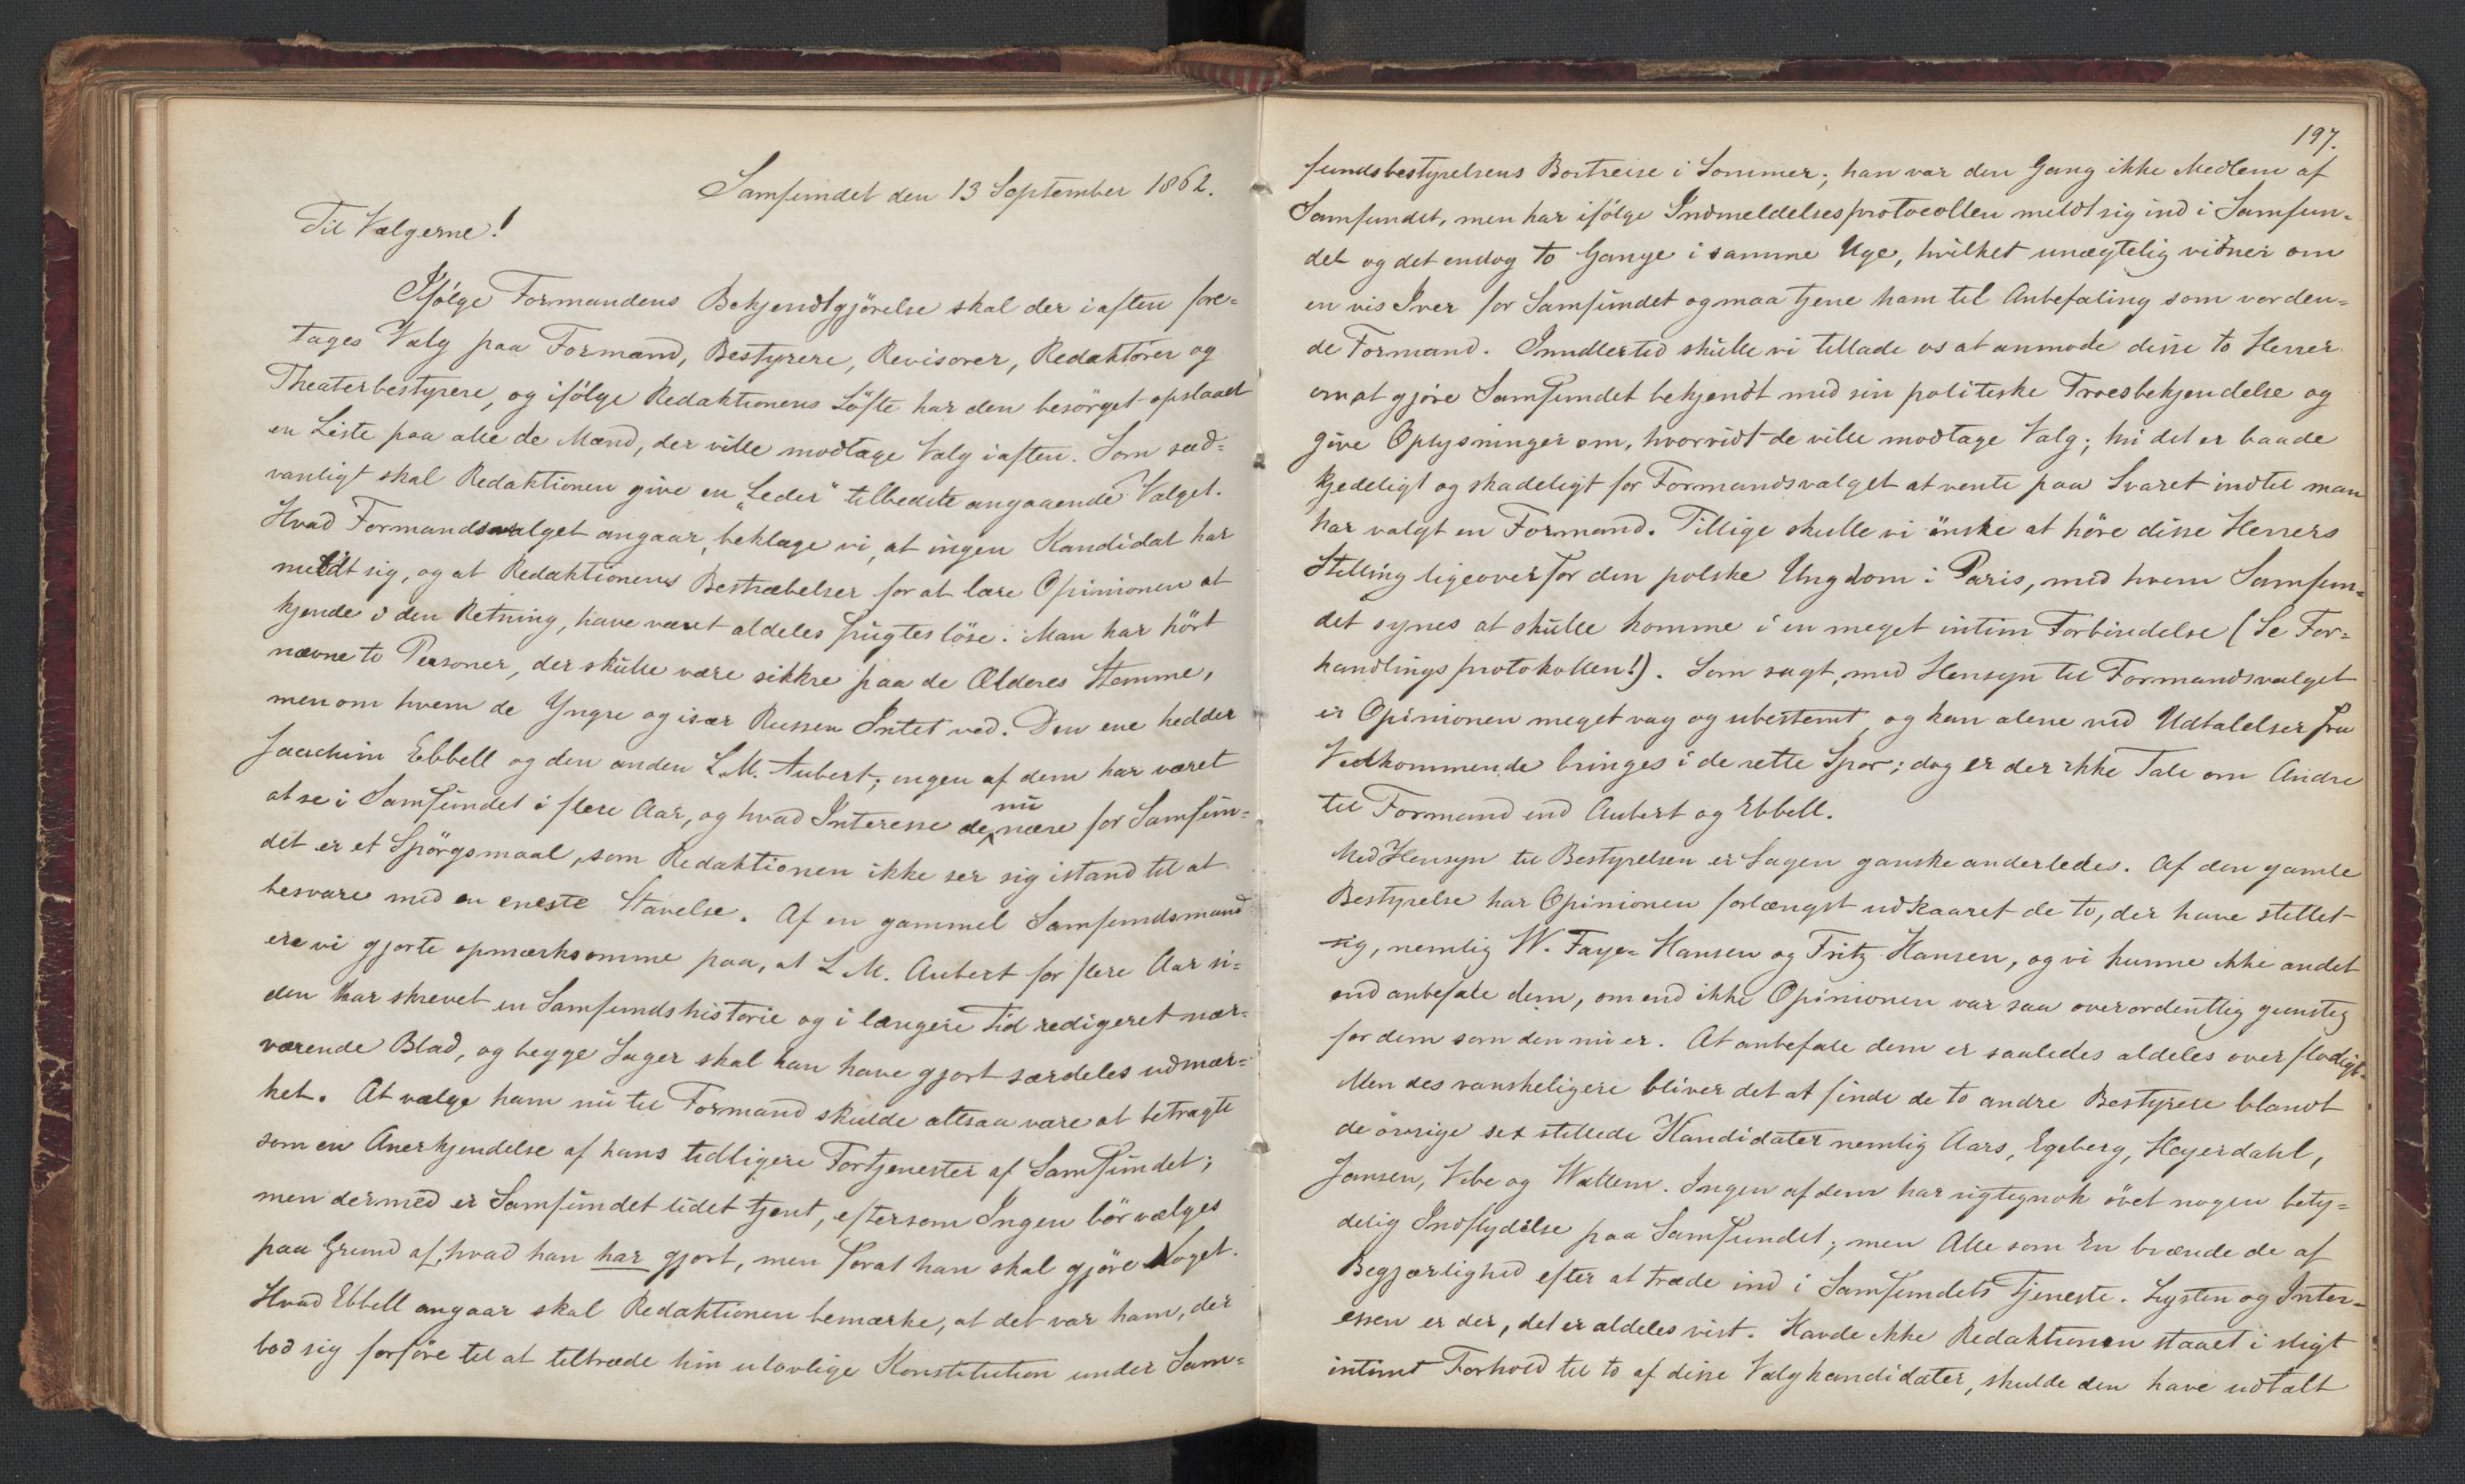 Samfundet den 13 September 1862.
Til Vælgerne!
Ifølge Formandens Bekjendtgjörelse skal der iaften fore-
tages Valg paa Formand, Bestyrere, Revisorer, Redaktører og
Theaterbestyrere, og ifölge Redaktionens Löfte har den besörget opslaaet
en Liste paa alle de Mænd, der ville modtage Valg iaften. Som sæd-
vanligt skal Redaktionen give en „Leder“ tilbedste angaaende Valget.
Hvad Formandsvalget angaar, beklage vi, at ingen Kandidat har
meldt sig, og at Redaktionens Bestræbelser for at lære Opinionen at
kjende i den Retning, have været aldeles frugtesløse. Man har hört
nævne to Personer, der skulle være sikkre paa de Ældres Stemme,
men om hvem de Yngre og især Russen Intet ved. Den ene hedder
Joachim Ebbell og den anden L.M. Aubert; ingen af dem har været
at se i Samfundet i flere Aar, og hvad Interesse de nu nære for Samfun-
det er et Spörgsmaal, som Redaktionen ikke ser sig istand til at
besvare med en eneste Stavelse. Af en gammel Samfundsmand
ere vi gjorte opmærksomme paa, at L. M. Aubert for flere Aar si-
den har skrevet en Samfundshistorie og i længere Tid redigeret nær-
værende Blad, og begge Sager skal han have gjort særdeles udmær-
ket. At vælge ham nu til Formand skulde altsaa være at betragte
som en Anerkjendelse af hans tidligere Fortjenester af Samfundet;
men dermed er Samfundet lidet tjent, eftersom Ingen bör vælges
paa Grund af, hvad han har gjort, men forat han skal gjöre Noget.
Hvad Ebbell angaar skal Redaktionen bemærke, at det var ham, der
lod sig forföre til at tiltræde hin ulovlige Konstitution under Sam-
197.
fundsbestyrelsens Bortreise i Sommer; han var den Gang ikke Medlem af
Samfundet, men har ifölge Indmeldelsesprotocollen meldt sig ind i Samfun-
det og det endog to Gange i samme Uge, hvilket unægtelig vidner om
en vis Iver for Samfundet og maa tjene ham til Anbefaling som vorden-
de Formand. Imidlertid skulle vi tillade os at anmode disse to Herrer
om at gjöre Samfundet bekjendt med sin politiske Troesbekjendelse og
give Oplysninger om, hvorvidt de ville modtage Valg; thi det er baade
kjedeligt og skadeligt for Formandsvalget at vente paa Svaret indtil man
har valgt en Formand. Tillige skulle vi önske at höre disse Herrers
Stilling ligeoverfor den polske Ungdom i Paris, med hvem Samfun-
det synes at skulle komme i en meget intim Forbindelse (Se For-
handlingsprotokollen!). Som sagt, med Hensyn til Formandsvalget
er Opinionen meget vag og ubestemt, og kan alene ved Udtalelser fra
Vedkommende bringes i de rette Spor; dog er der ikke Tale om Andre
til Formand end Aubert og Ebbell.
Med Hensyn til Bestyrelsen er Sagen ganske anderledes. Af den gamle
Bestyrelse har Opinionen forlængst udkaaret de to, der have stillet
sig, nemlig W. Faye-Hansen og Fritz Hansen, og vi kunne ikke andet
end anbefale dem, om end ikke Opinionen var saa overordentlig gunstig
for dem som den nu er. At anbefale dem er saaledes aldeles overflødigt.
Men des vanskeligere bliver det at finde de to andre Bestyrere blandt
de övrige sex stillede Kandidater nemlig Aars, Egeberg, Heyerdahl,
Jansen, Vibe og Wallem. Ingen af dem har rigtignok övet nogen bety-
delig Indflydelse paa Samfundet; men Alle som En brænde de af
Begjærlighed efter at træde ind i Samfundets Tjeneste. Lysten og Inter-
essen er der, det er aldeles vist. Havde ikke Redaktionen staaet i sligt
intimt Forhold til to af disse Valgkandidater, skulde den have udtalt